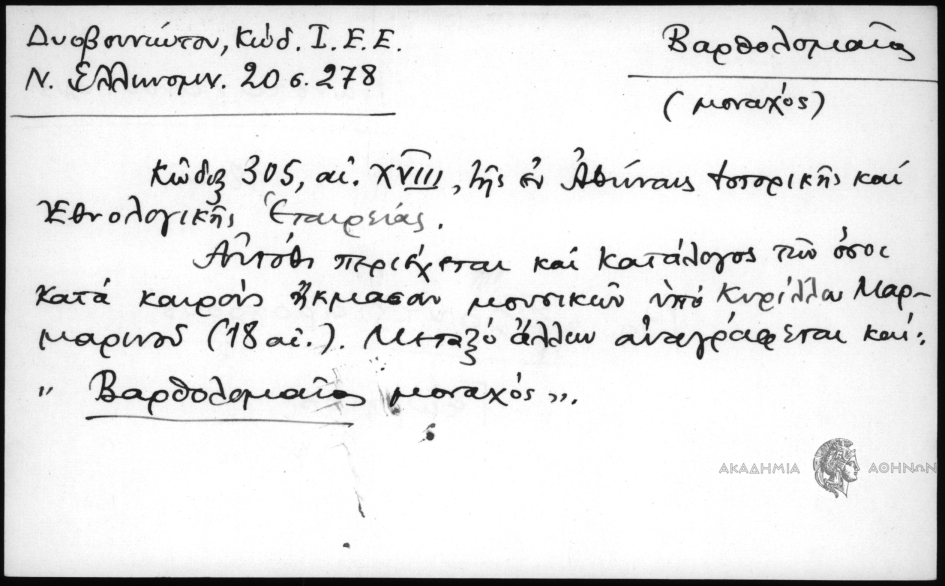 Δυοβουνιώτου, Κώδ. Ι. Ε. Ε.
Ν. Ἑλληνομν. 20 σ. 278
Βαρθολομαῖος
(μοναχός)
Κῶδιξ 305, αἰ. XVIII, τῆς ἐν Ἀθήναις Ἱστορικῆς καὶ
Ἐθνολογικῆς Ἑταιρείας.
Αὐτόθι περιέχεται καὶ κατάλογος τῶν ὅσοι
κατά καιρούς ἤκμασαν μουσικῶν ὑπό Κυρίλλου Μαρ-
μαρινοῦ (18 αἰ.). Μεταξύ ἄλλων ἀναγράφεται καί:
„ Βαρθολομαῖος μοναχός ".
ΑΚΑΔΗΜΙΑ ΑΘΗΝΩΝ